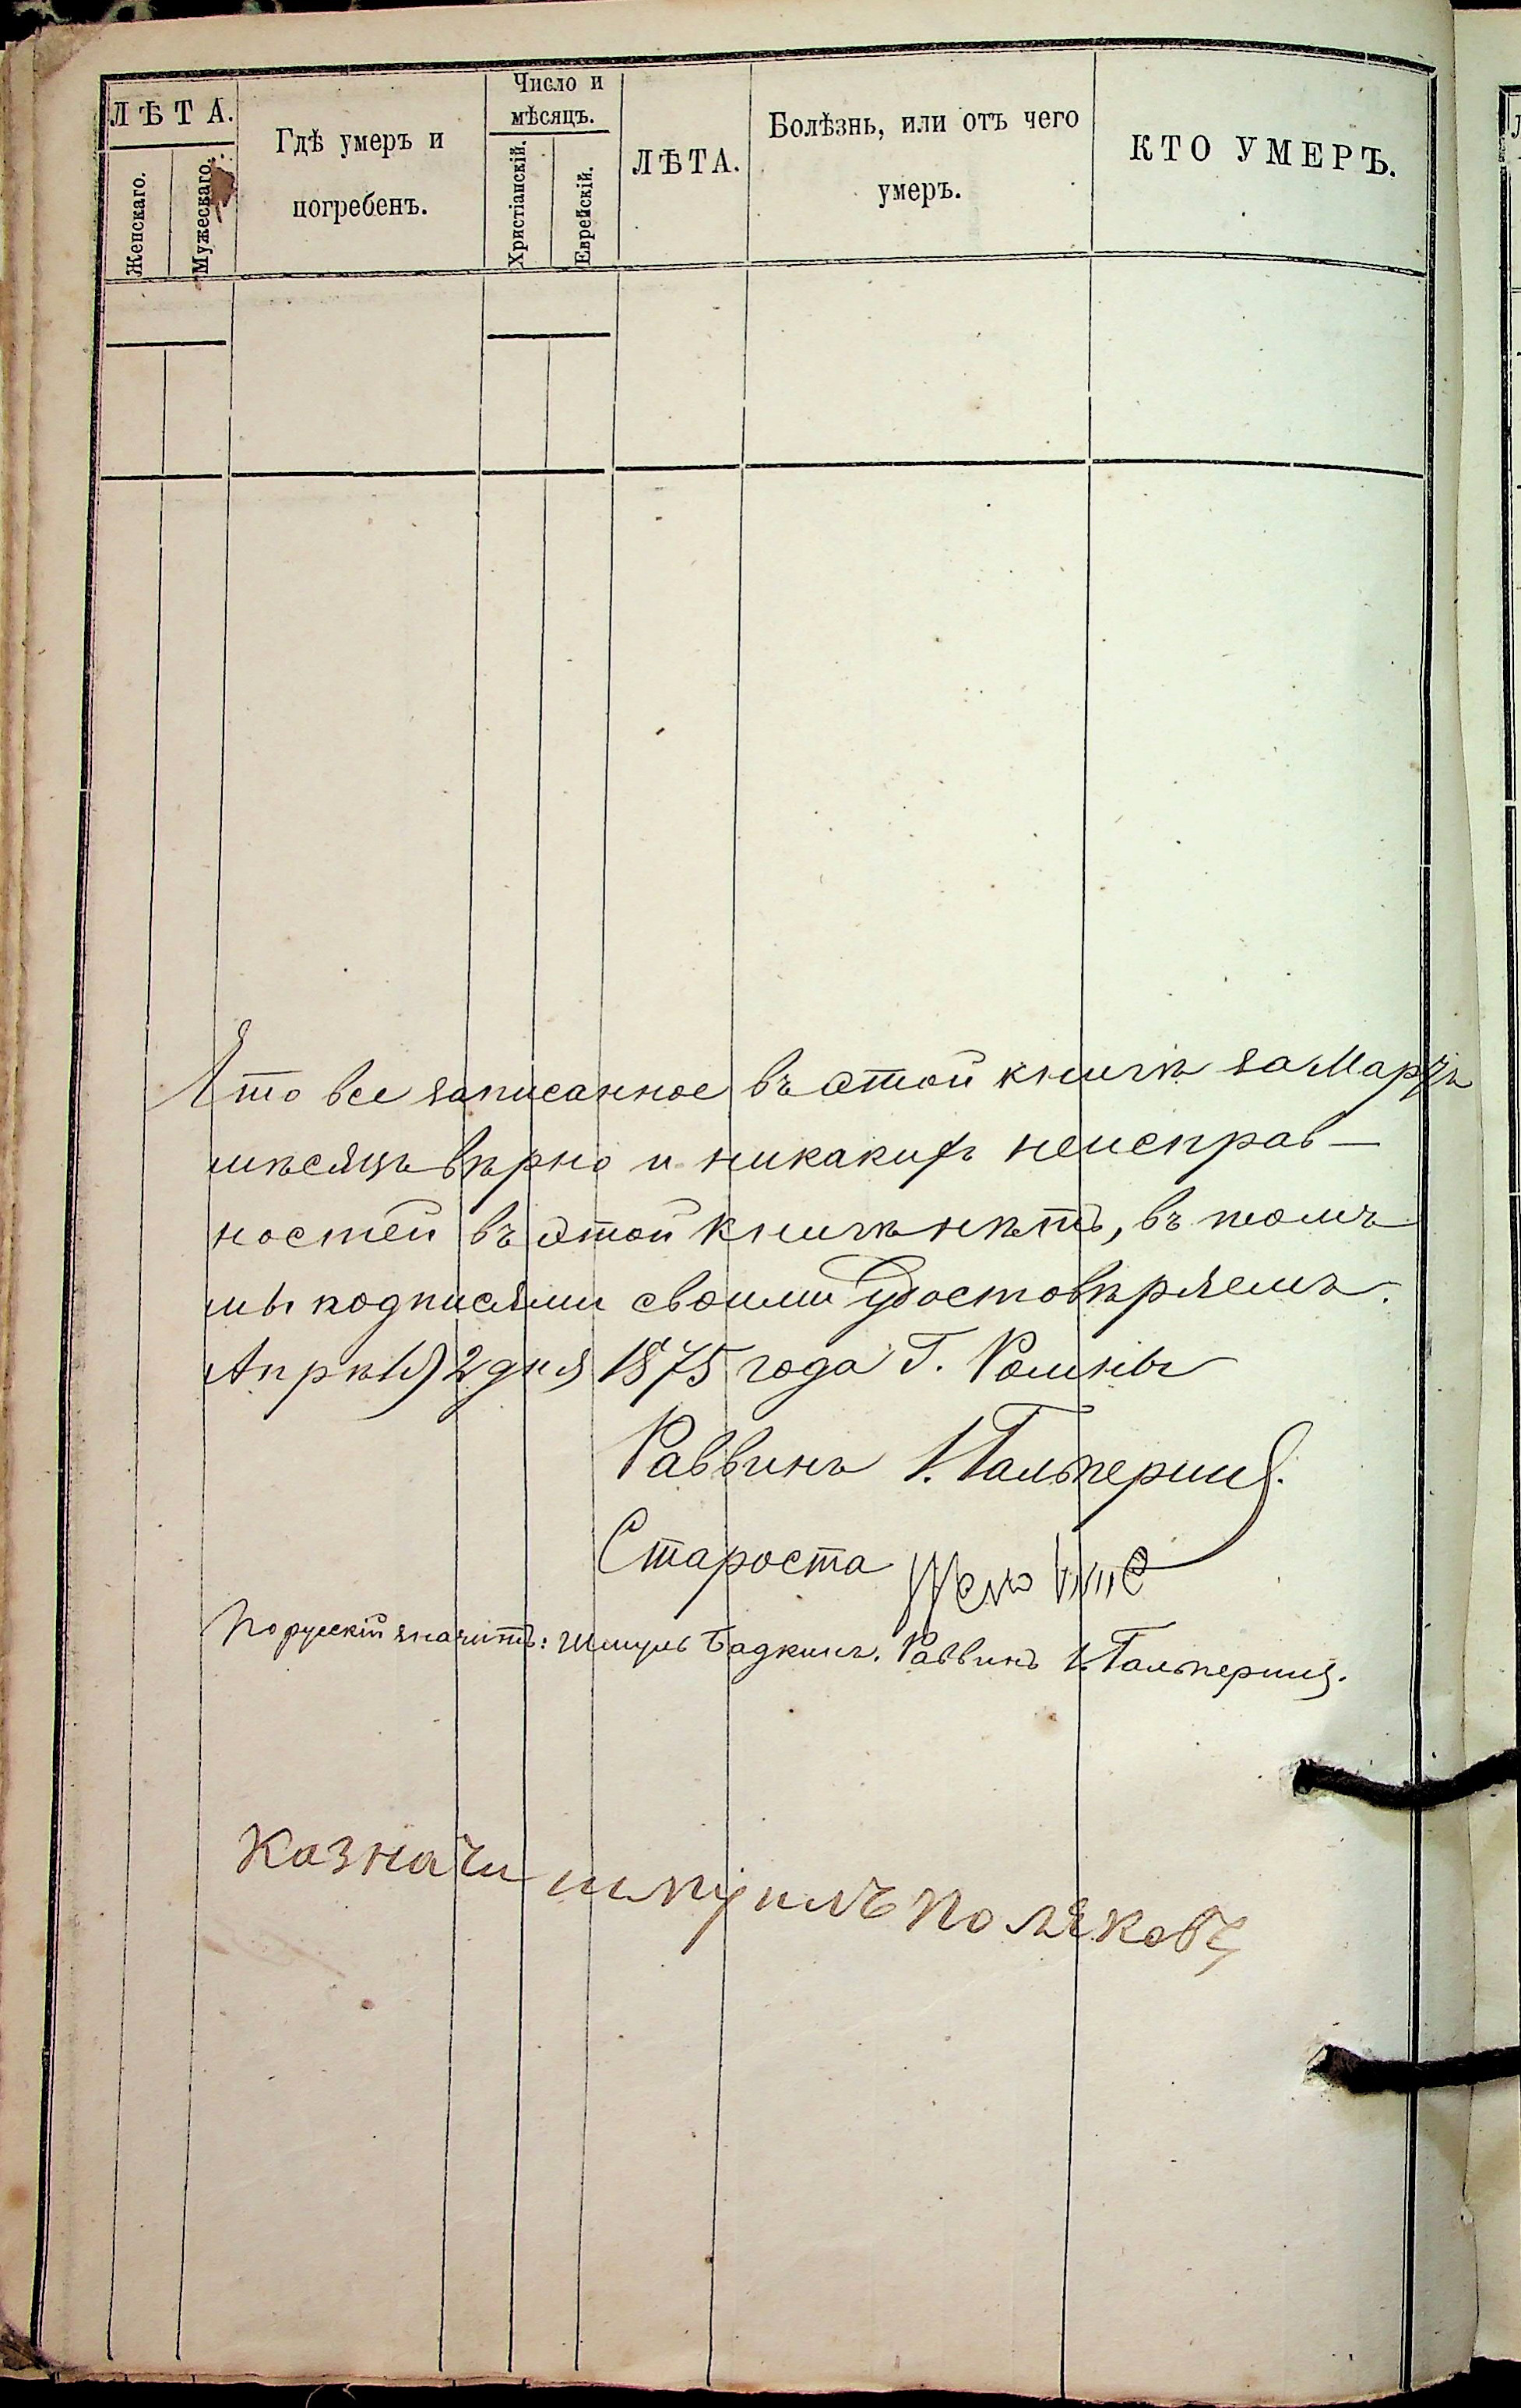 ЛѢТА.
Женскаго.
Мужескаго.
Гдѣ умеръ и
погребенъ.
Число и
мѣсяцъ.
Христіанскій.
Еврейскій.
ЛѢТА.
Болѣзнь, или отъ чего
умеръ.
КТО УМЕРЪ.
Что все записанное въ этой книгѣ за Мартъ
мѣсяцъ вѣрно и никакихъ неисправ-
ностей въ этой книгѣ нѣтъ, въ томъ
мы подписями своими удостовѣряемъ.
Апрѣля 2 дня 1875 года Г. Ромны
Раввинъ І. Гальперинъ.
Староста
По русскій значитъ: Шмулъ Бадкинъ. Раввинъ І. Гальперинъ.
Казначи шмуилъ Поляковъ